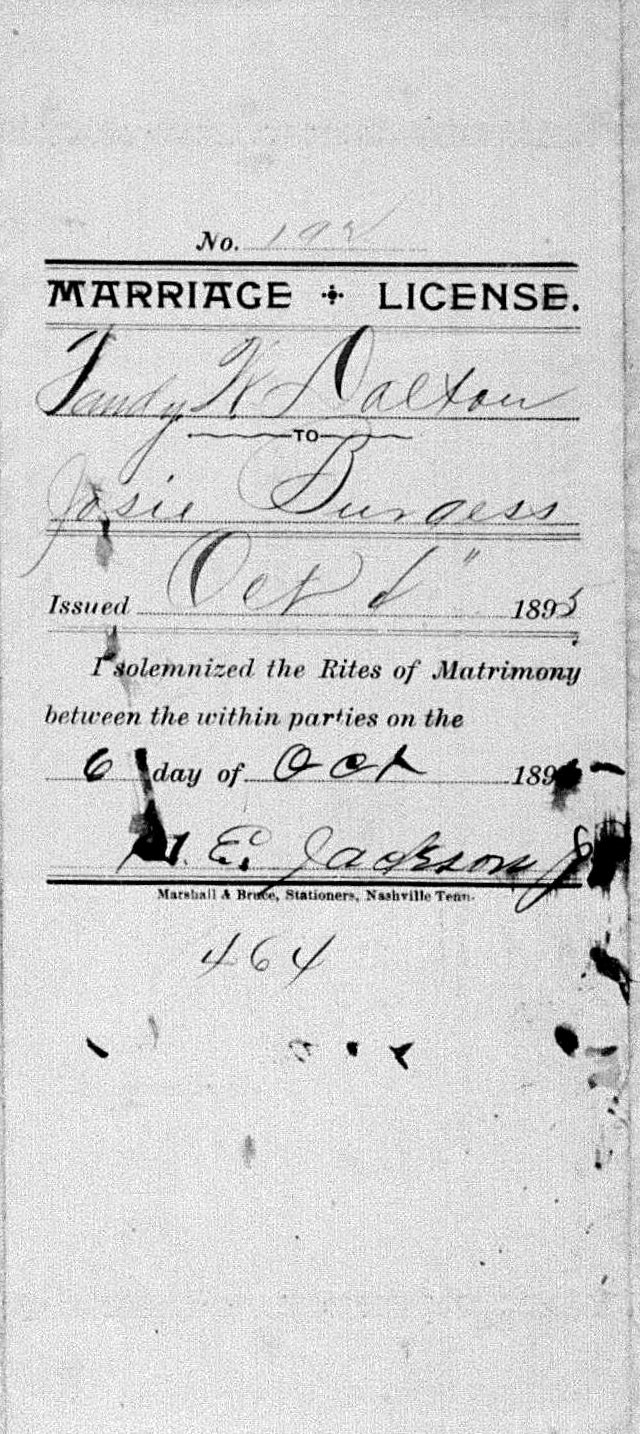 No.
MARRIAGE LICENSE.
Tandy K Dalton
TO
Josie Burgess
Issued Oct 1895
I solemnized the Rites of Matrimony
between the within parties on the
6 day of Oct 189
E. Jackson
Marshall & Bruce, Stationers, Nashville Tenn.
464